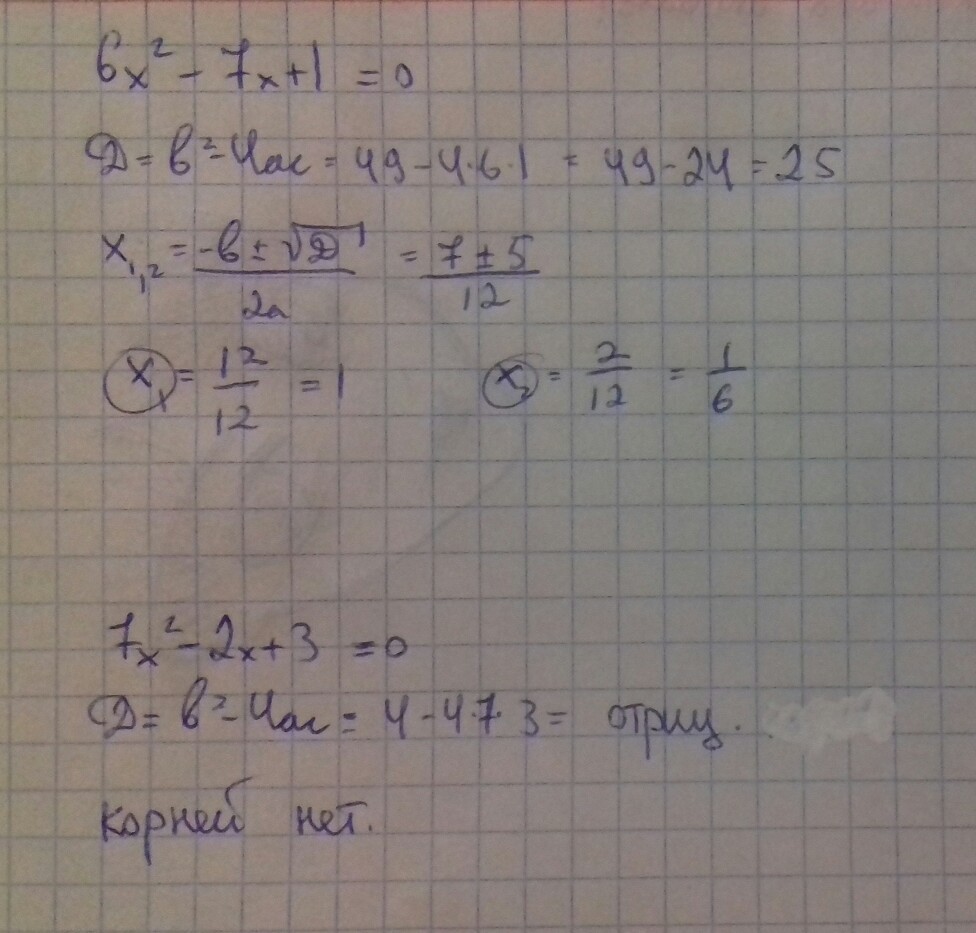 6x² - 7x+1 = 0
D = b²-4ac = 49-4·6·1 = 49-24 = 25
x₁,₂ = (-b ± √D)/2a = (7 ± 5)/12
x₁ = 12/12 = 1 x₂ = 2/12 = 1/6
7x² - 2x+3 = 0
D = b²-4ac = 4-4·7·3 = отриц.
корней нет.